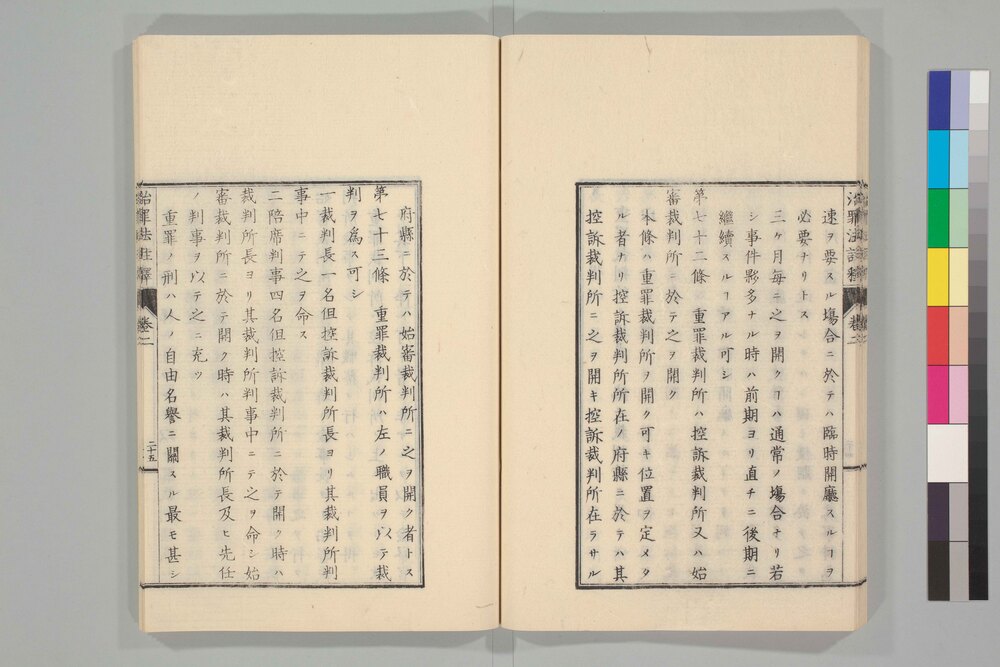 速ヲ要スル塲合ニ於テハ臨時開廳スルヿヲ
必要ナリトス
三ケ月每ニ之ヲ開クヿハ通常ノ塲合ナリ若
シ事件夥多ナル時ハ前期ヨリ直チニ後期ニ
繼續スルヿアル可シ
第七十二條　重罪裁判所ハ控訴裁判所又ハ始
審裁判所ニ於テ之ヲ開ク
本條ハ重罪裁判所ヲ開ク可キ位置ヲ定メタ
ル者ナリ控訴裁判所所在ノ府縣ニ於テハ其
控訴裁判所ニ之ヲ開キ控訴裁判所在ラサル
府縣ニ於テハ始審裁判所ニ之ヲ開ク者トス
第七十三條　重罪裁判所ハ左ノ職員ヲ以テ裁
判ヲ爲ス可シ
一裁判長一名但控訴裁判所長ヨリ其裁判所判
事中ニテ之ヲ命ス
二陪席判事四名但控訴裁判所ニ於テ開ク時ハ
裁判所長ヨリ其裁判所判事中ニテ之ヲ命シ始
審裁判所ニ於テ開ク時ハ其裁判所長及ヒ先任
ノ判事ヲ以テ之ニ充ツ
重罪ノ刑ハ人ノ自由名譽ニ關スル最モ甚シ
治罪法註釋　卷二　二十五